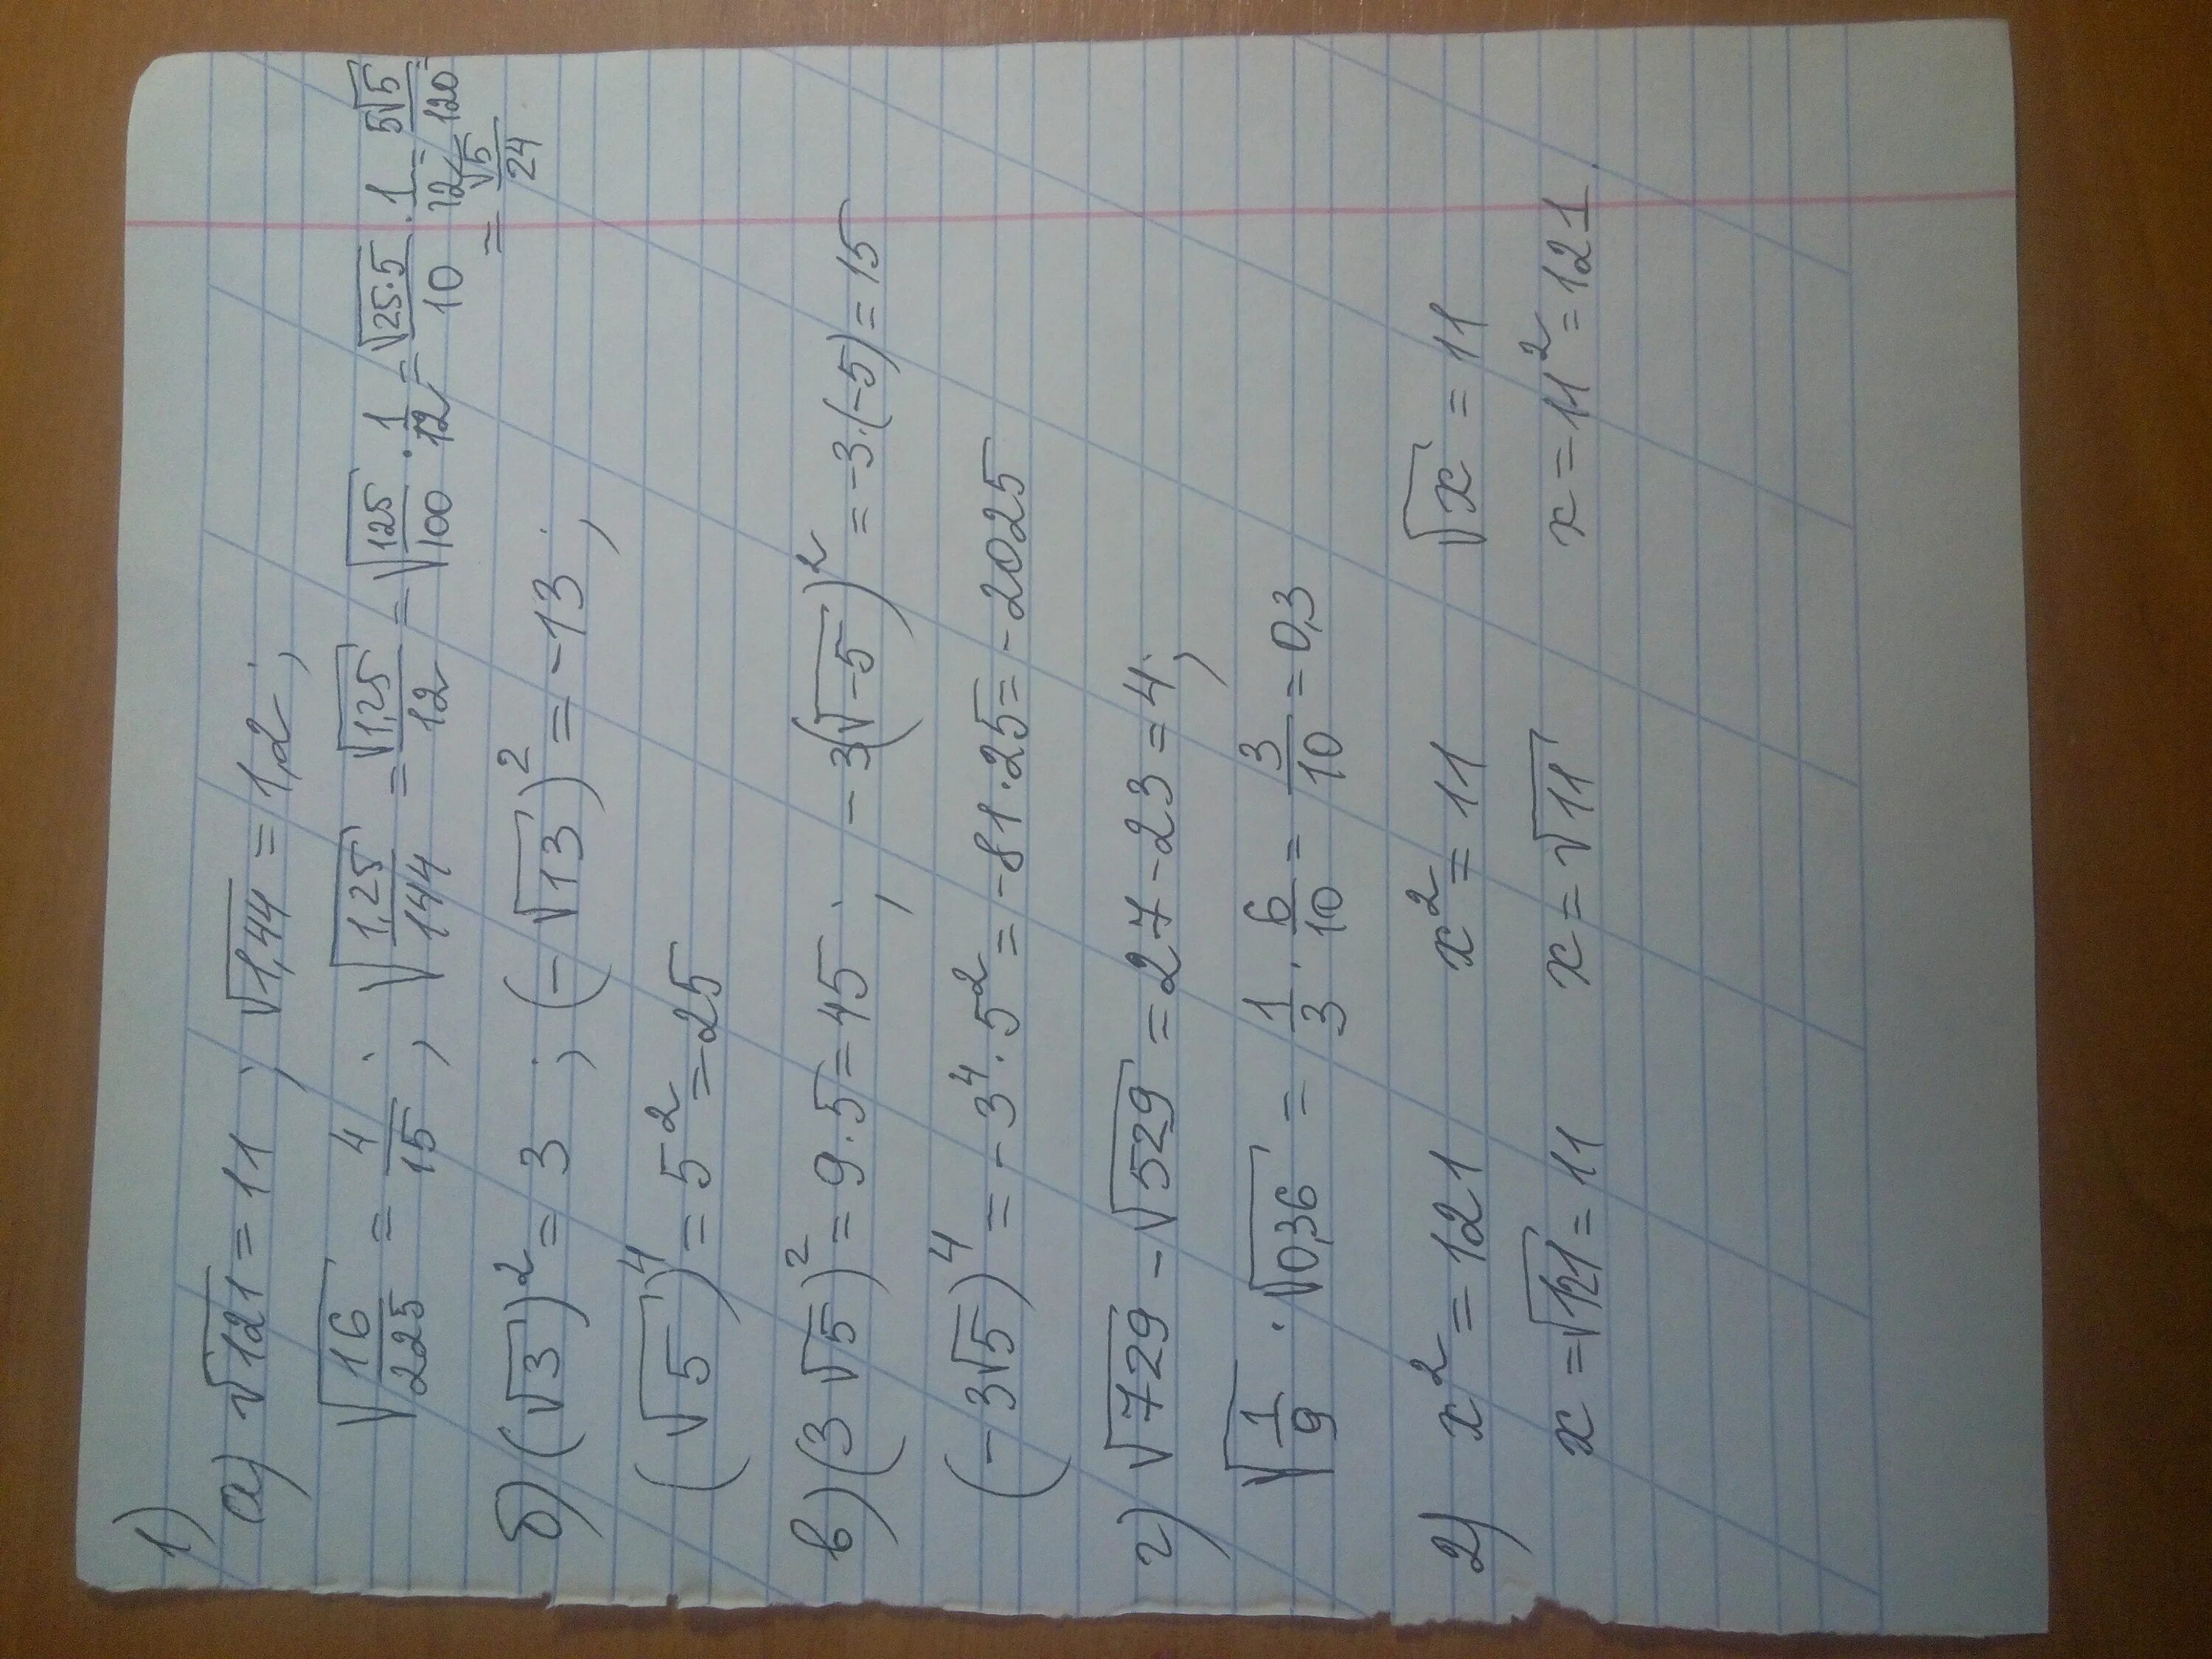 1)
а) √121 = 11 ; √1,44 = 1,2 ;
√(16/225) = 4/15 ; √(1,25/144) = √1,25/12 = √(125/100) · 1/12 = √(25·5)/10 · 1/12 = 5√5/120 =
= √5/24
б) (√3)² = 3 ; (-√13)² = -13 ;
(√5)⁴ = 5² = 25
в) (3√5)² = 9·5 = 45 ; -3(√-5)² = -3·(-5) = 15
(-3√5)⁴ = -3⁴·5² = -81·25 = -2025
г) √729 - √529 = 27-23 = 4 ;
√(1/9) · √0,36 = 1/3 · 6/10 = 3/10 = 0,3
2) x² = 121 x² = 11 √x = 11
x = √121 = 11 x = √11 x = 11² = 121